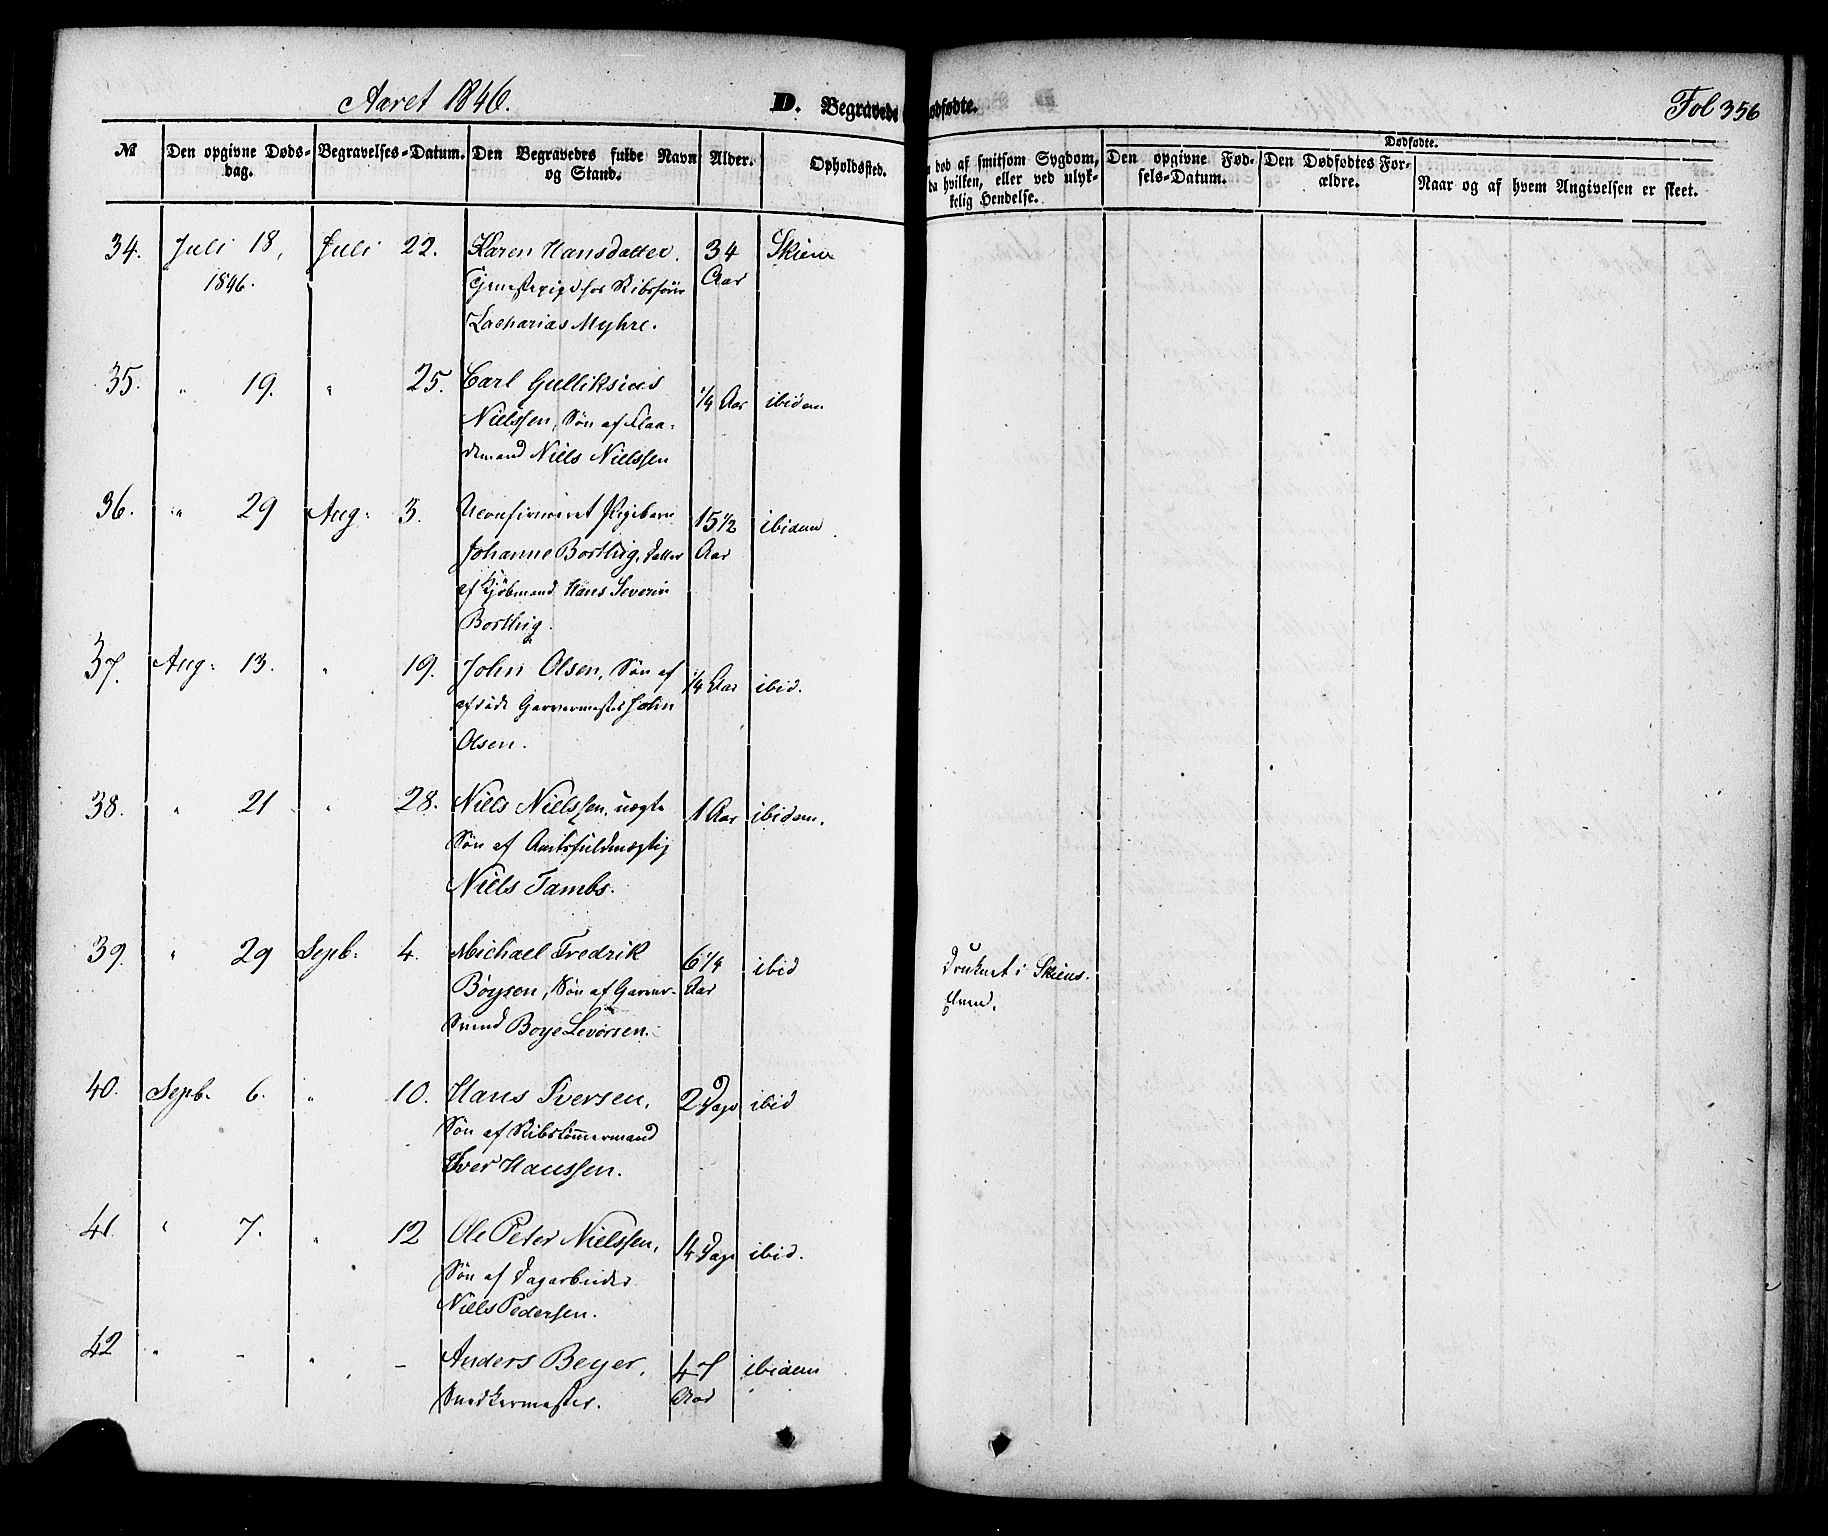 Aaret 1846.
D. Begravede
ødfødte.
Fol 356
№
Den opgivne Døds-
dag.
Begravelses-Datum.
Den Begravedes fulde Navn
og Stand.
Alder.
Opholdssted.
død af smitsom Sygdom,
da hvilken, eller ved ulyk-
kelig Hendelse.
Dødfødte.
Den opgivne Fød-
sels-Datum.
Den Dødfødtes For-
ældre.
Naar og af hvem Angivelsen er skeet.
34. Juli 18, Juli 22. Karen Hansdatter. 34 Skien
1846. Tjenestepige hos Skibsfører Aar
Zacharias Myhre.
35. " 19. " 25. Carl Gulliksen
Nielssen, Søn af Flaa- 1/4 Aar ibidem
demand Niels Nielssen
36. " 29 Aug: 3. Uconfirmeret Pigebarn 15 1/2 ibidem
Johanne Borthig, Datter Aar
af Kjøbmand Hans Severin
Borthig.
37. Aug: 13. " 19. John Olsen, Søn af 1/4 Aar ibid.
afdøde Garvermester John
Olsen.
38. " 21 " 28. Niels Nielssen, uægte 1 Aar ibidem.
Søn af Amtsfuldmægtig
Niels Tambs.
39. " 29 Sepb: 4. Michael Fredrik 6 1/4 ibid Druknet i Skiens
Bøysen, Søn af Garver- Aar Elven.
svend Boye Levorsen.
40. Sepb. 6. " 10. Hans Iversen, 2 Dage ibid
Søn af Skibstømmermand
Iver Hanssen.
41. " 7. " 12 Ole Peter Nielssen, 14 Dage ibid.
Søn af Dagarbeider
Niels Pedersen.
42 " - " - Anders Beyer, 47 ibidem
Snedkermester. Aar